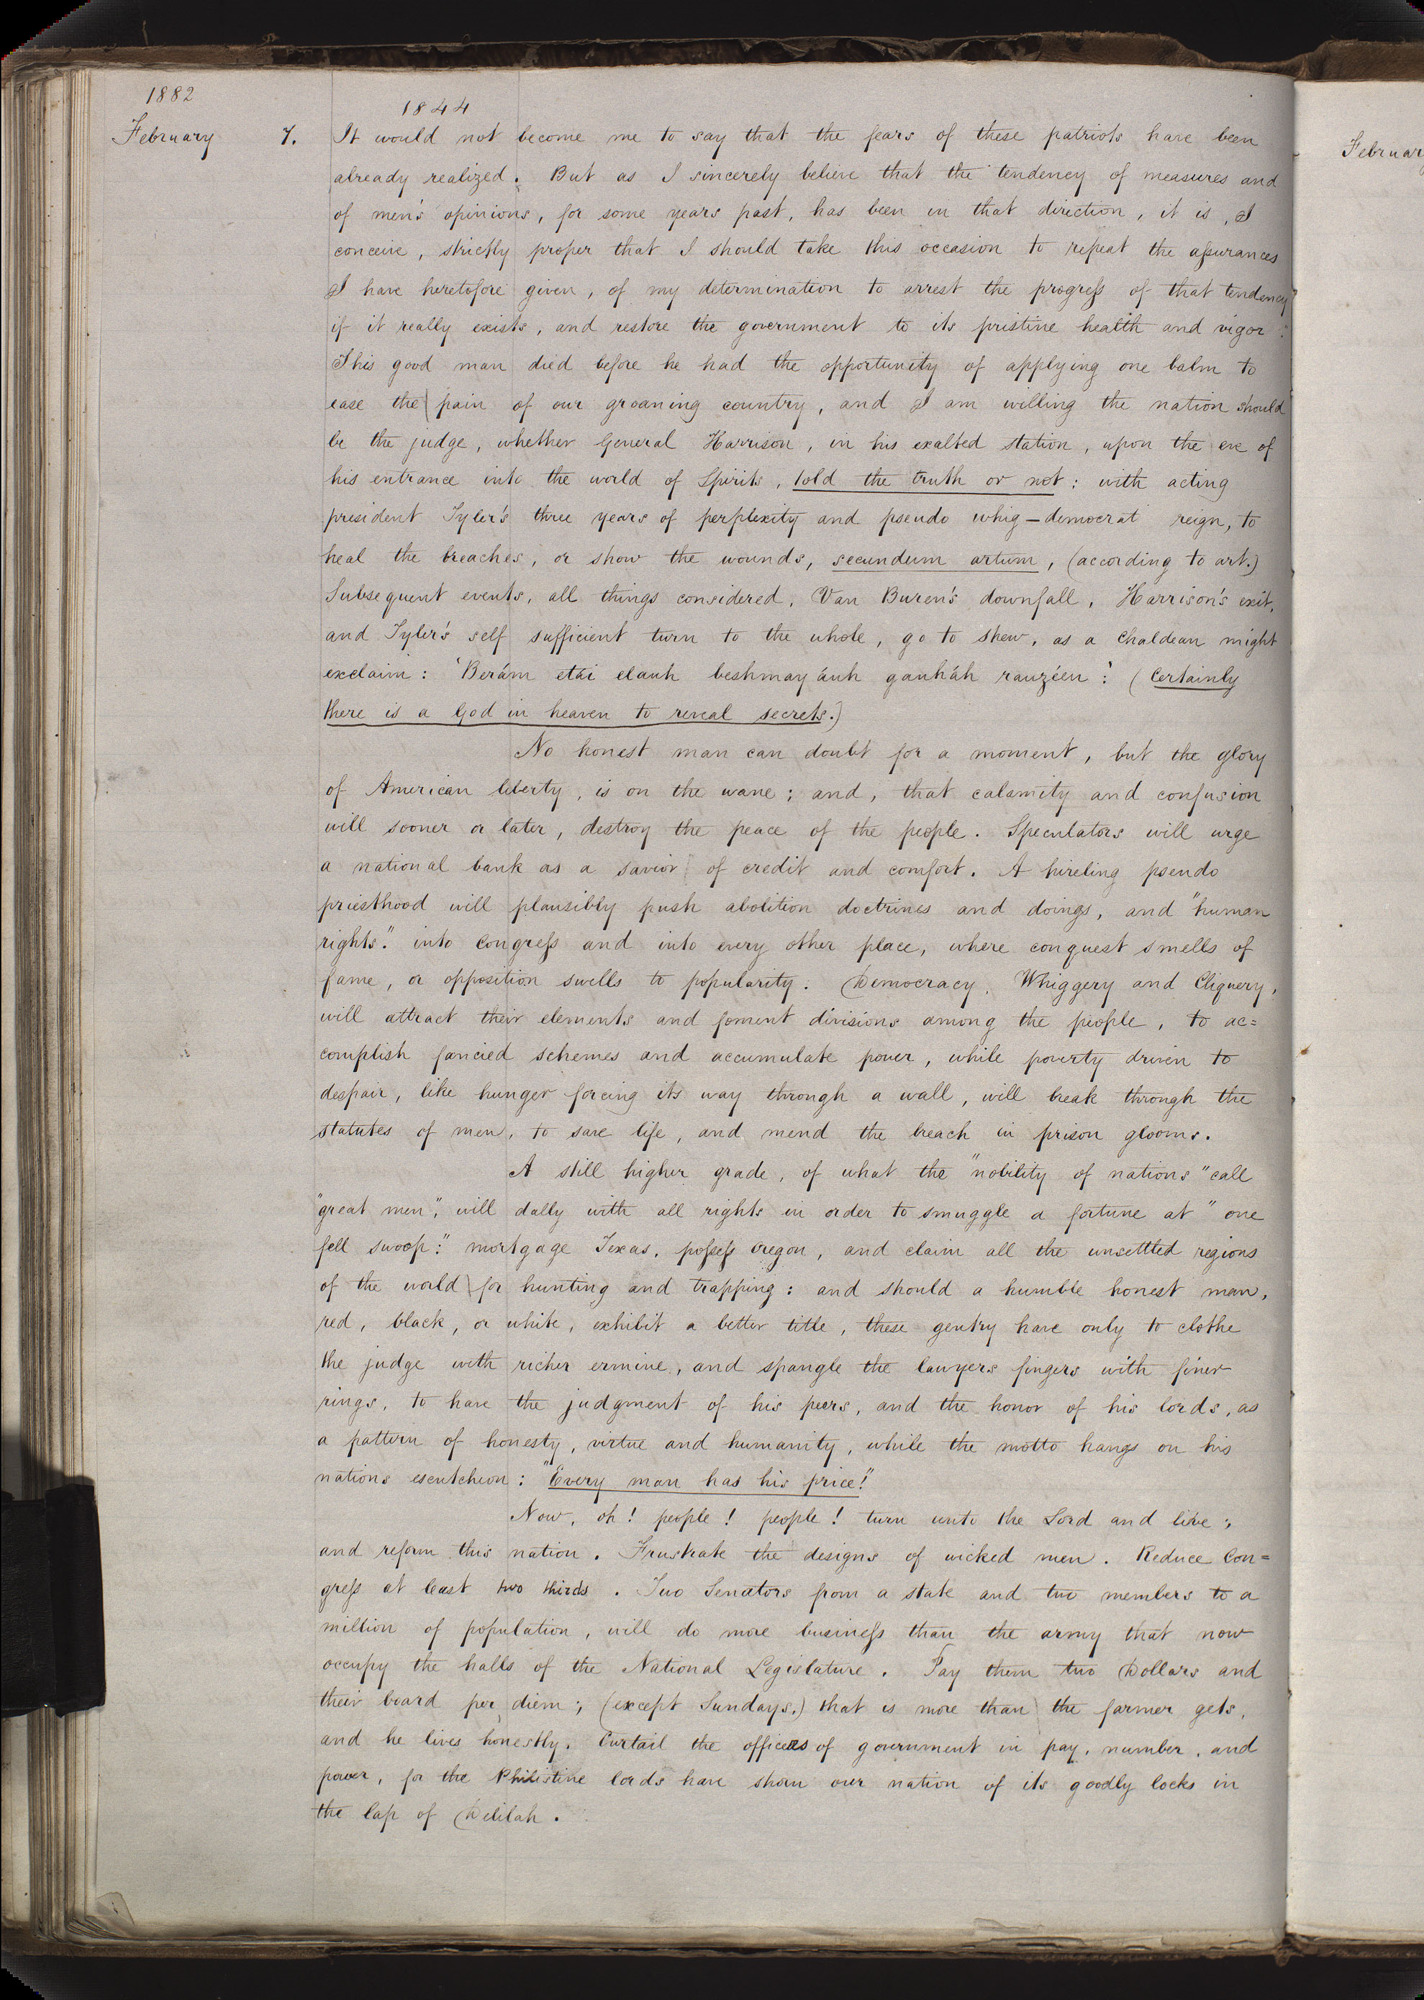 1882
1844
February 7. It would not become me to say that the fears of these patriots have been
already realized. But as I sincerely believe that the tendency of measures and
of men's opinions, for some years past, has been in that direction, it is, I
conceive, strictly proper that I should take this occasion to repeat the assurances
I have heretofore given, of my determination to arrest the progress of that tendency
if it really exists, and restore the government to its pristine health and vigor:
This good man died before he had the opportunity of applying one balm to
ease the pain of our groaning country, and I am willing the nation should
be the judge, whether General Harrison, in his exalted station, upon the eve of
his entrance into the world of Spirits, told the truth or not: with acting
president Tyler's three years of perplexity and pseudo whig-democrat reign, to
heal the breaches, or show the wounds, secundum artum, (according to art.)
Subsequent events, all things considered, Van Buren's downfall, Harrison's exit,
and Tyler's self sufficient turn to the whole, go to shew, as a Chaldean might
exclaim: 'Berám etái elauh beshmayáuh gauháh rauzéen:' (Certainly
there is a God in heaven to reveal secrets.)
No honest man can doubt for a moment, but the glory
of American liberty, is on the wane; and, that calamity and confusion
will sooner or later, destroy the peace of the people. Speculators will urge
a national bank as a savior of credit and comfort. A hireling pseudo
priesthood will plausibly push abolition doctrines and doings, and "human
rights." into Congress and into every other place, where conquest smells of
fame, or opposition swells to popularity. Democracy, Whiggery and Cliquery,
will attract their elements and foment divisions among the people, to ac=
complish fancied schemes and accumulate power, while poverty driven to
despair, like hunger forcing its way through a wall, will break through the
statutes of men, to save life, and mend the breach in prison glooms.
A still higher grade, of what the "nobility of nations" call
"great men", will dally with all rights in order to smuggle a fortune at "one
fell swoop:" mortgage Texas, possess Oregon, and claim all the unsettled regions
of the world for hunting and trapping: and should a humble honest man,
red, black, or white, exhibit a better title, these gentry have only to clothe
the judge with richer ermine, and spangle the lawyers fingers with finer
rings, to have the judgment of his peers, and the honor of his lords, as
a pattern of honesty, virtue and humanity, while the motto hangs on his
nations escutcheon: "Every man has his price!"
Now, oh! people! people! turn unto the Lord and live;
and reform this nation. Frustrate the designs of wicked men. Reduce Con=
gress at least two thirds. Two Senators from a state and two members to a
million of population, will do more business than the army that now
occupy the halls of the National Legislature. Pay them two Dollars and
their board per diem; (except Sundays.) that is more than the farmer gets,
and he lives honestly. Curtail the officers of government in pay, number, and
power, for the Philistine lords have shorn our nation of its goodly locks in
the lap of Delilah.
Februar